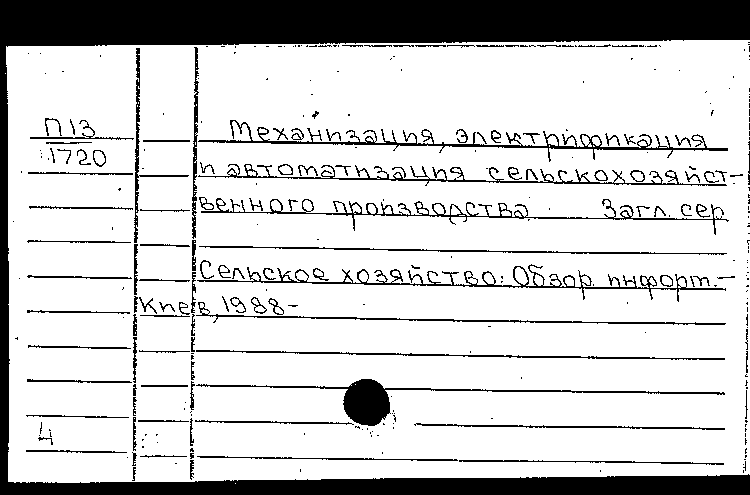 П13
1720
Механизация, электрификация
и автоматизация сельскохозяйст-
венного производства Загл. сер
Сельское хозяйство: Обзор. информ.-
Киев, 1988-
4